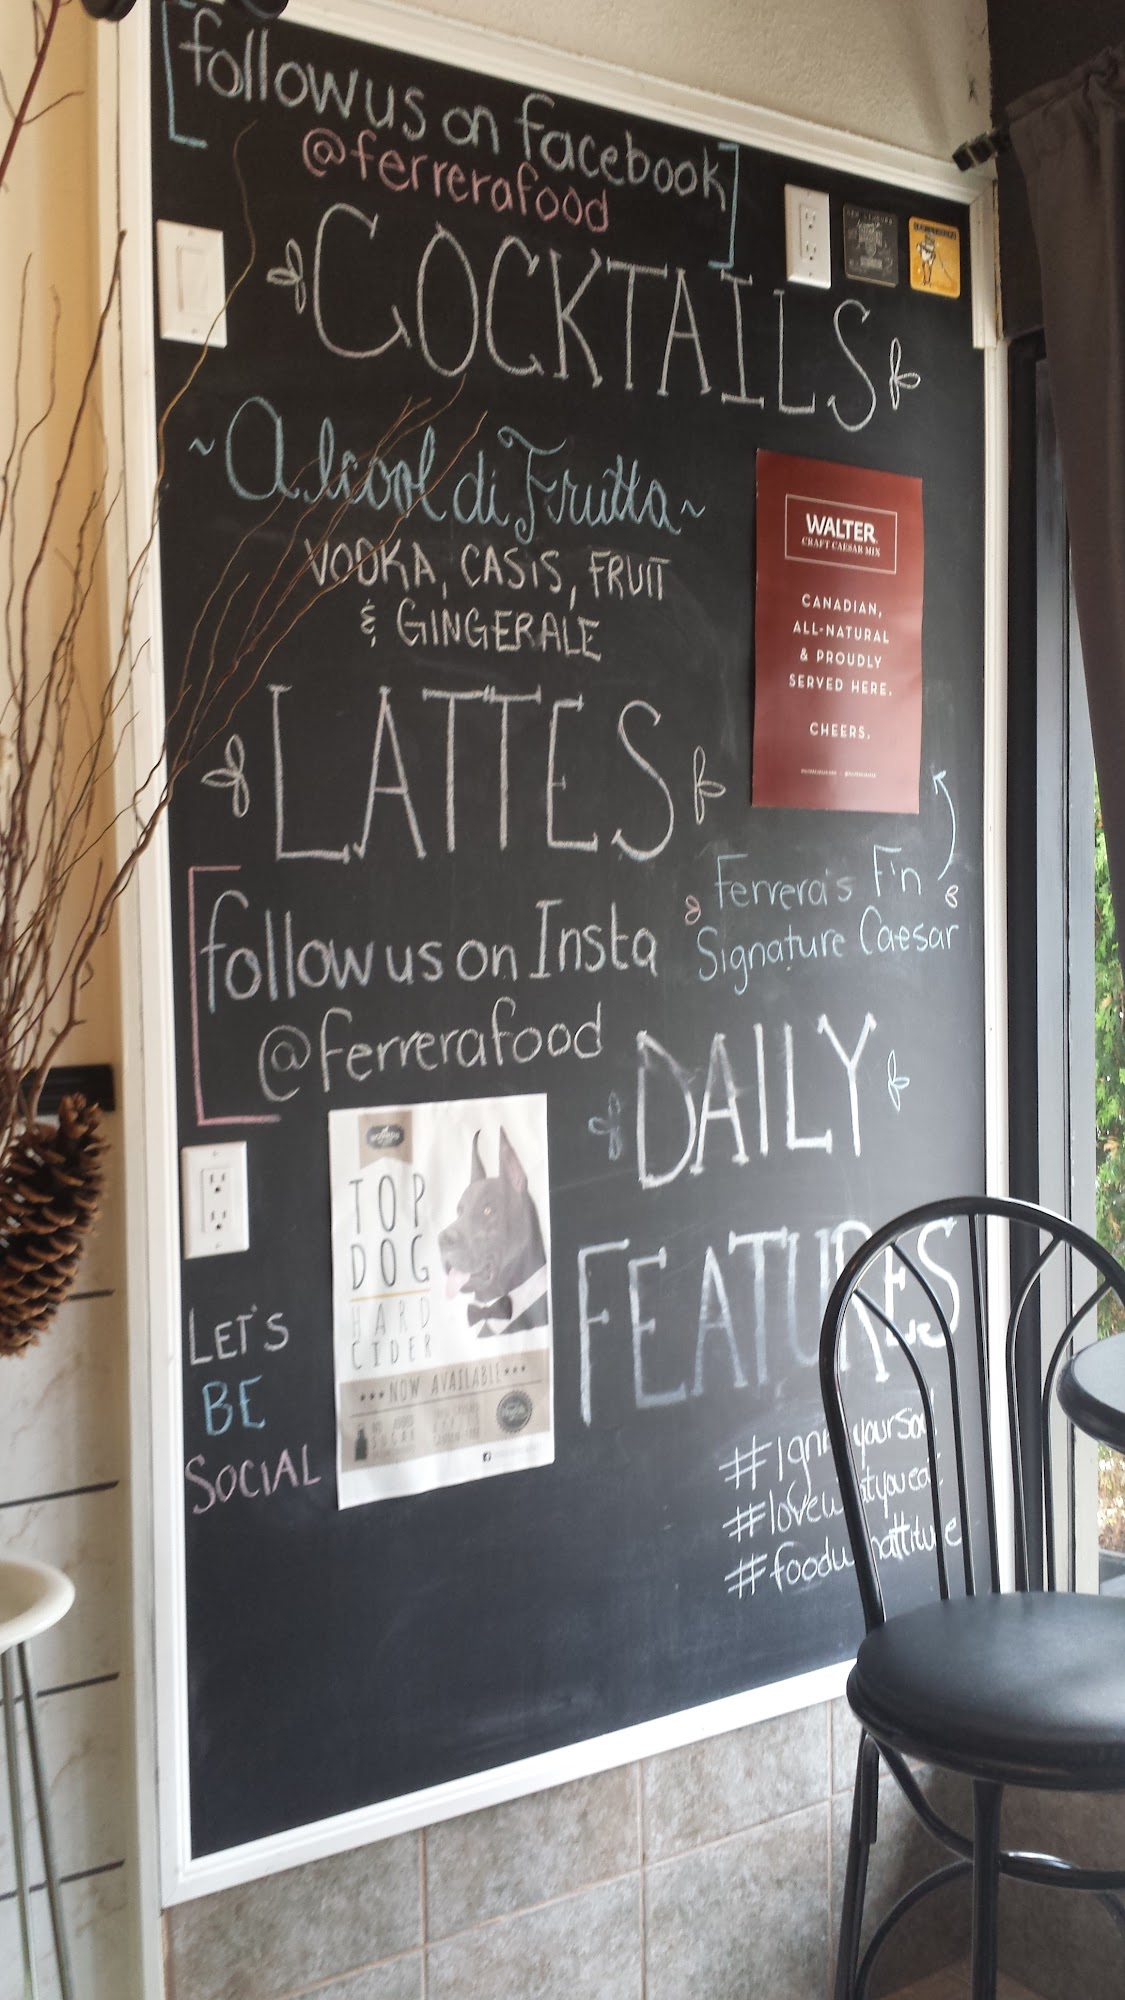 follow us on facebook
@ferrerafood
COCKTAILS
~Alcool di Frutta~
VODKA, CASIS, FRUIT
& GINGERALE
WALTER
CRAFT CAESAR MIX
CANADIAN,
ALL-NATURAL
& PROUDLY
SERVED HERE.
CHEERS.
LATTES
Ferrera's F'n
Signature Caesar
follow us on Insta
@ferrerafood
DAILY
FEATURES
TOP
DOG
HARD
CIDER
•••NOW AVAILABLE•••
NO ADDED
SUGAR
LET'S
BE
SOCIAL
#foodw